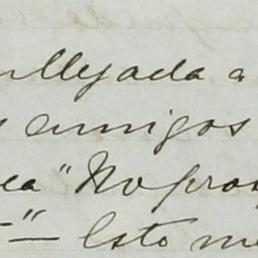 llegada a
amigos
ea "No pros
" — Esto me